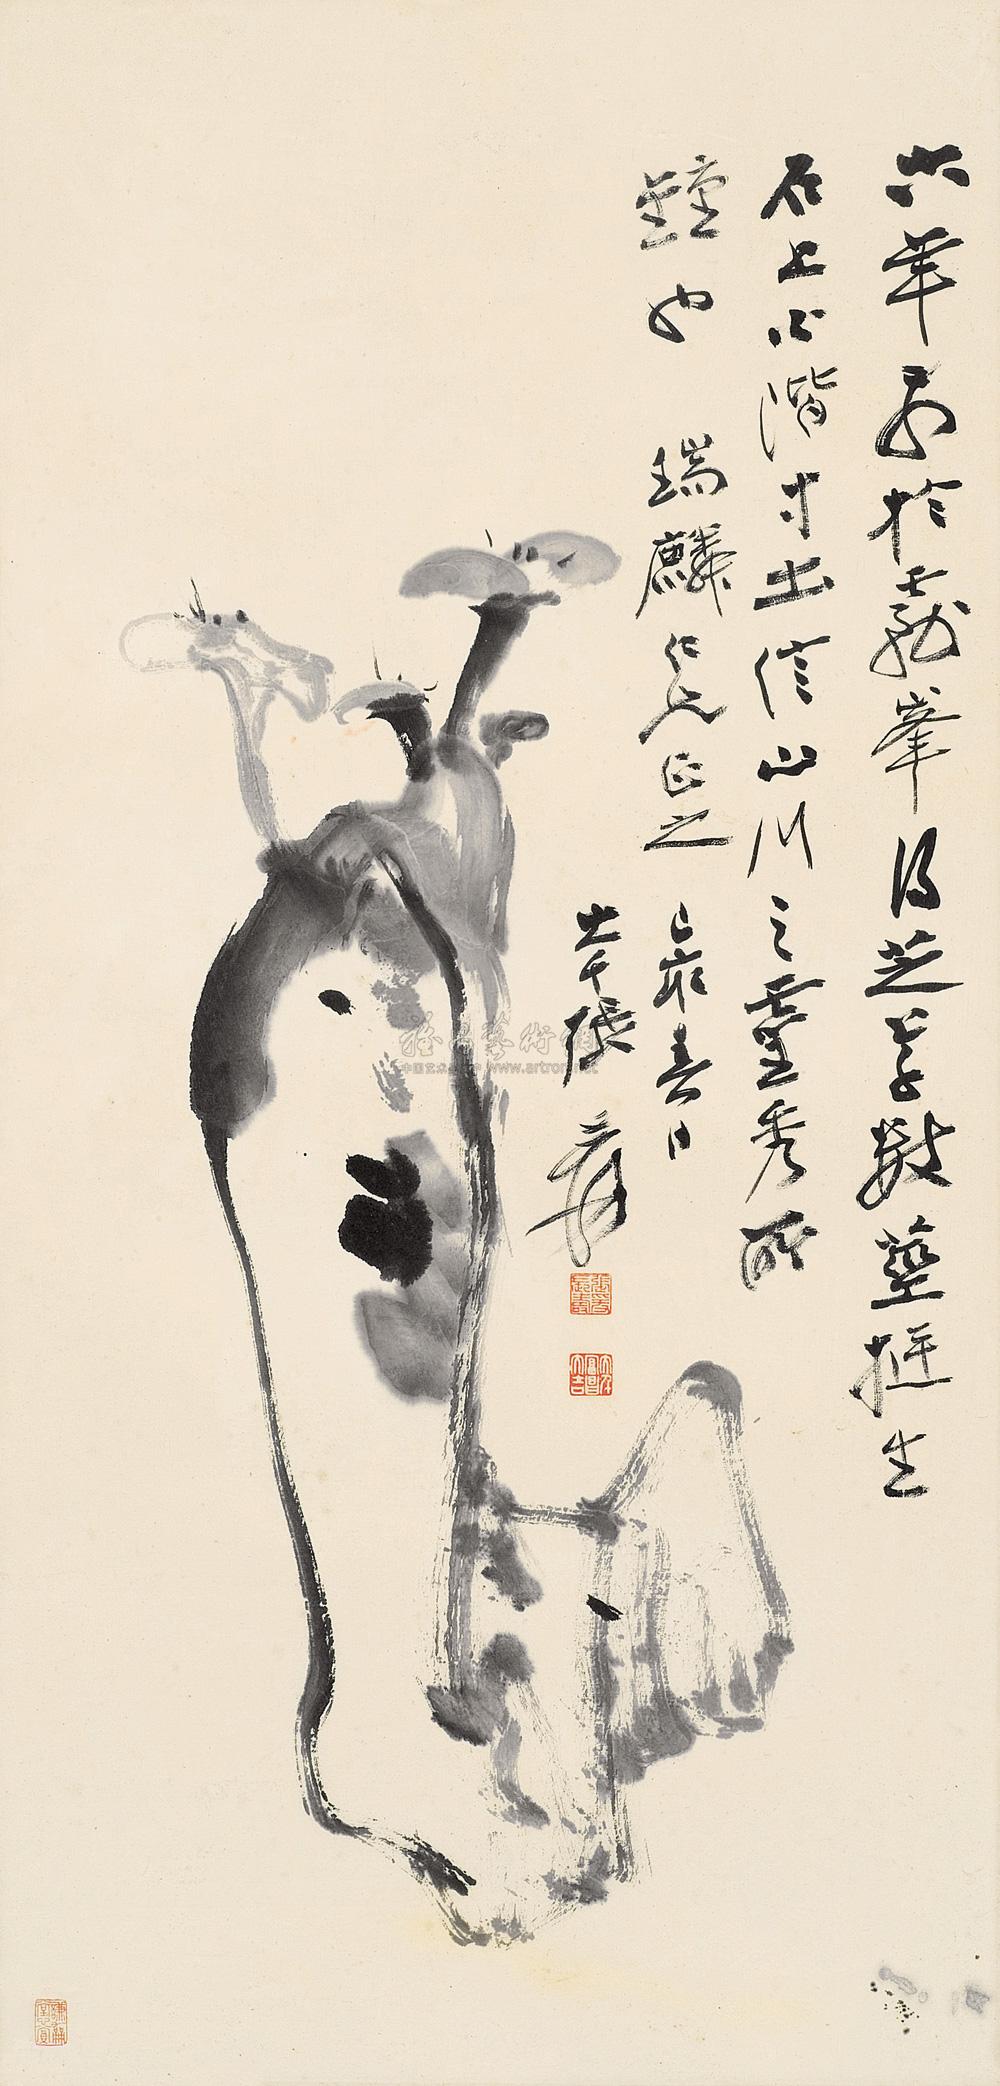 六年於龍峯得芝草數莖挺生
石上不階寸土信山川之靈秀所
鍾也 瑞麟仁兄正之 春日
大千張爰
雅昌藝術網
www.artron.net